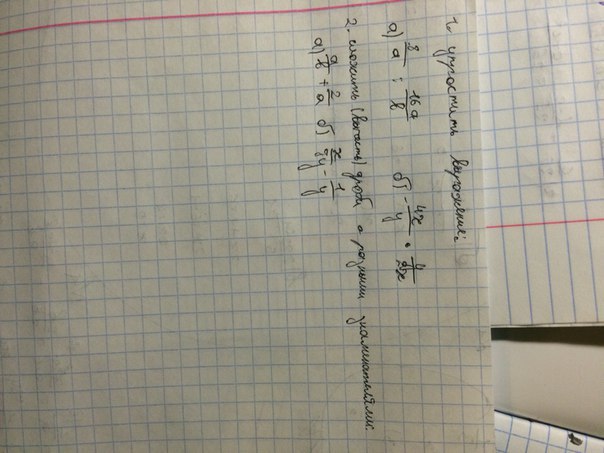 1. упростить выражение:
а) 8/a : 16a/b б) - 4x/y · y/2x
2. сложить (вычесть) дроби с разными знаменателями.
а) a/b + 2/a б) x/3y - 1/y